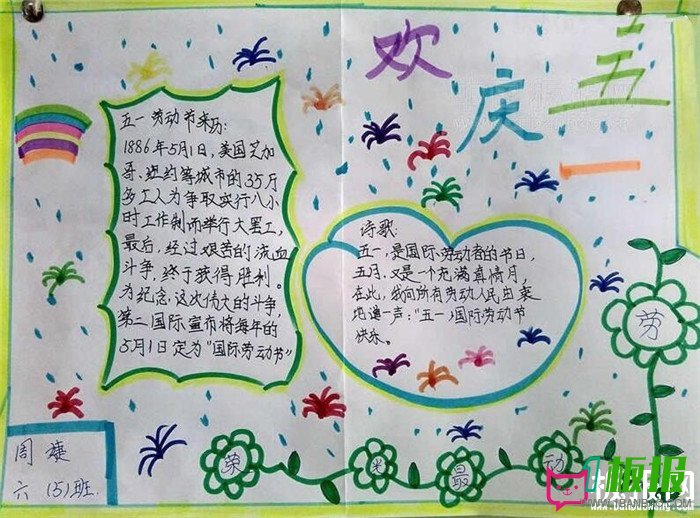 欢庆五一
五一劳动节来历:
1886年5月1日,美国芝加
哥、纽约等城市的35万
多工人为争取实行八小
时工作制而举行大罢工,
最后,经过艰苦的流血
斗争,终于获得胜利。
为纪念这次伟大的斗争,
第二国际宣布将每年的
5月1日定为“国际劳动节”
诗歌:
五一,是国际劳动者的节日,
五月,又是一个充满真情月,
在此,我向所有劳动人民由衷
地道一声:“五一”国际劳动节
快乐。
劳
动
最
光
荣
周婕
六(5)班
板报
WWW.1BANBAO.COM